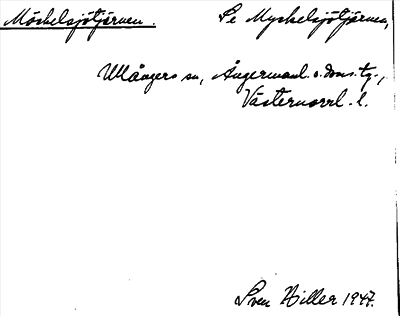 Möckelsjötjärnen. Se Myckelsjötjärnen,
Ullångers sn, Ångermanl. s. doms. tg.,
Västernorrl. l.
Sven Hiller 1947.